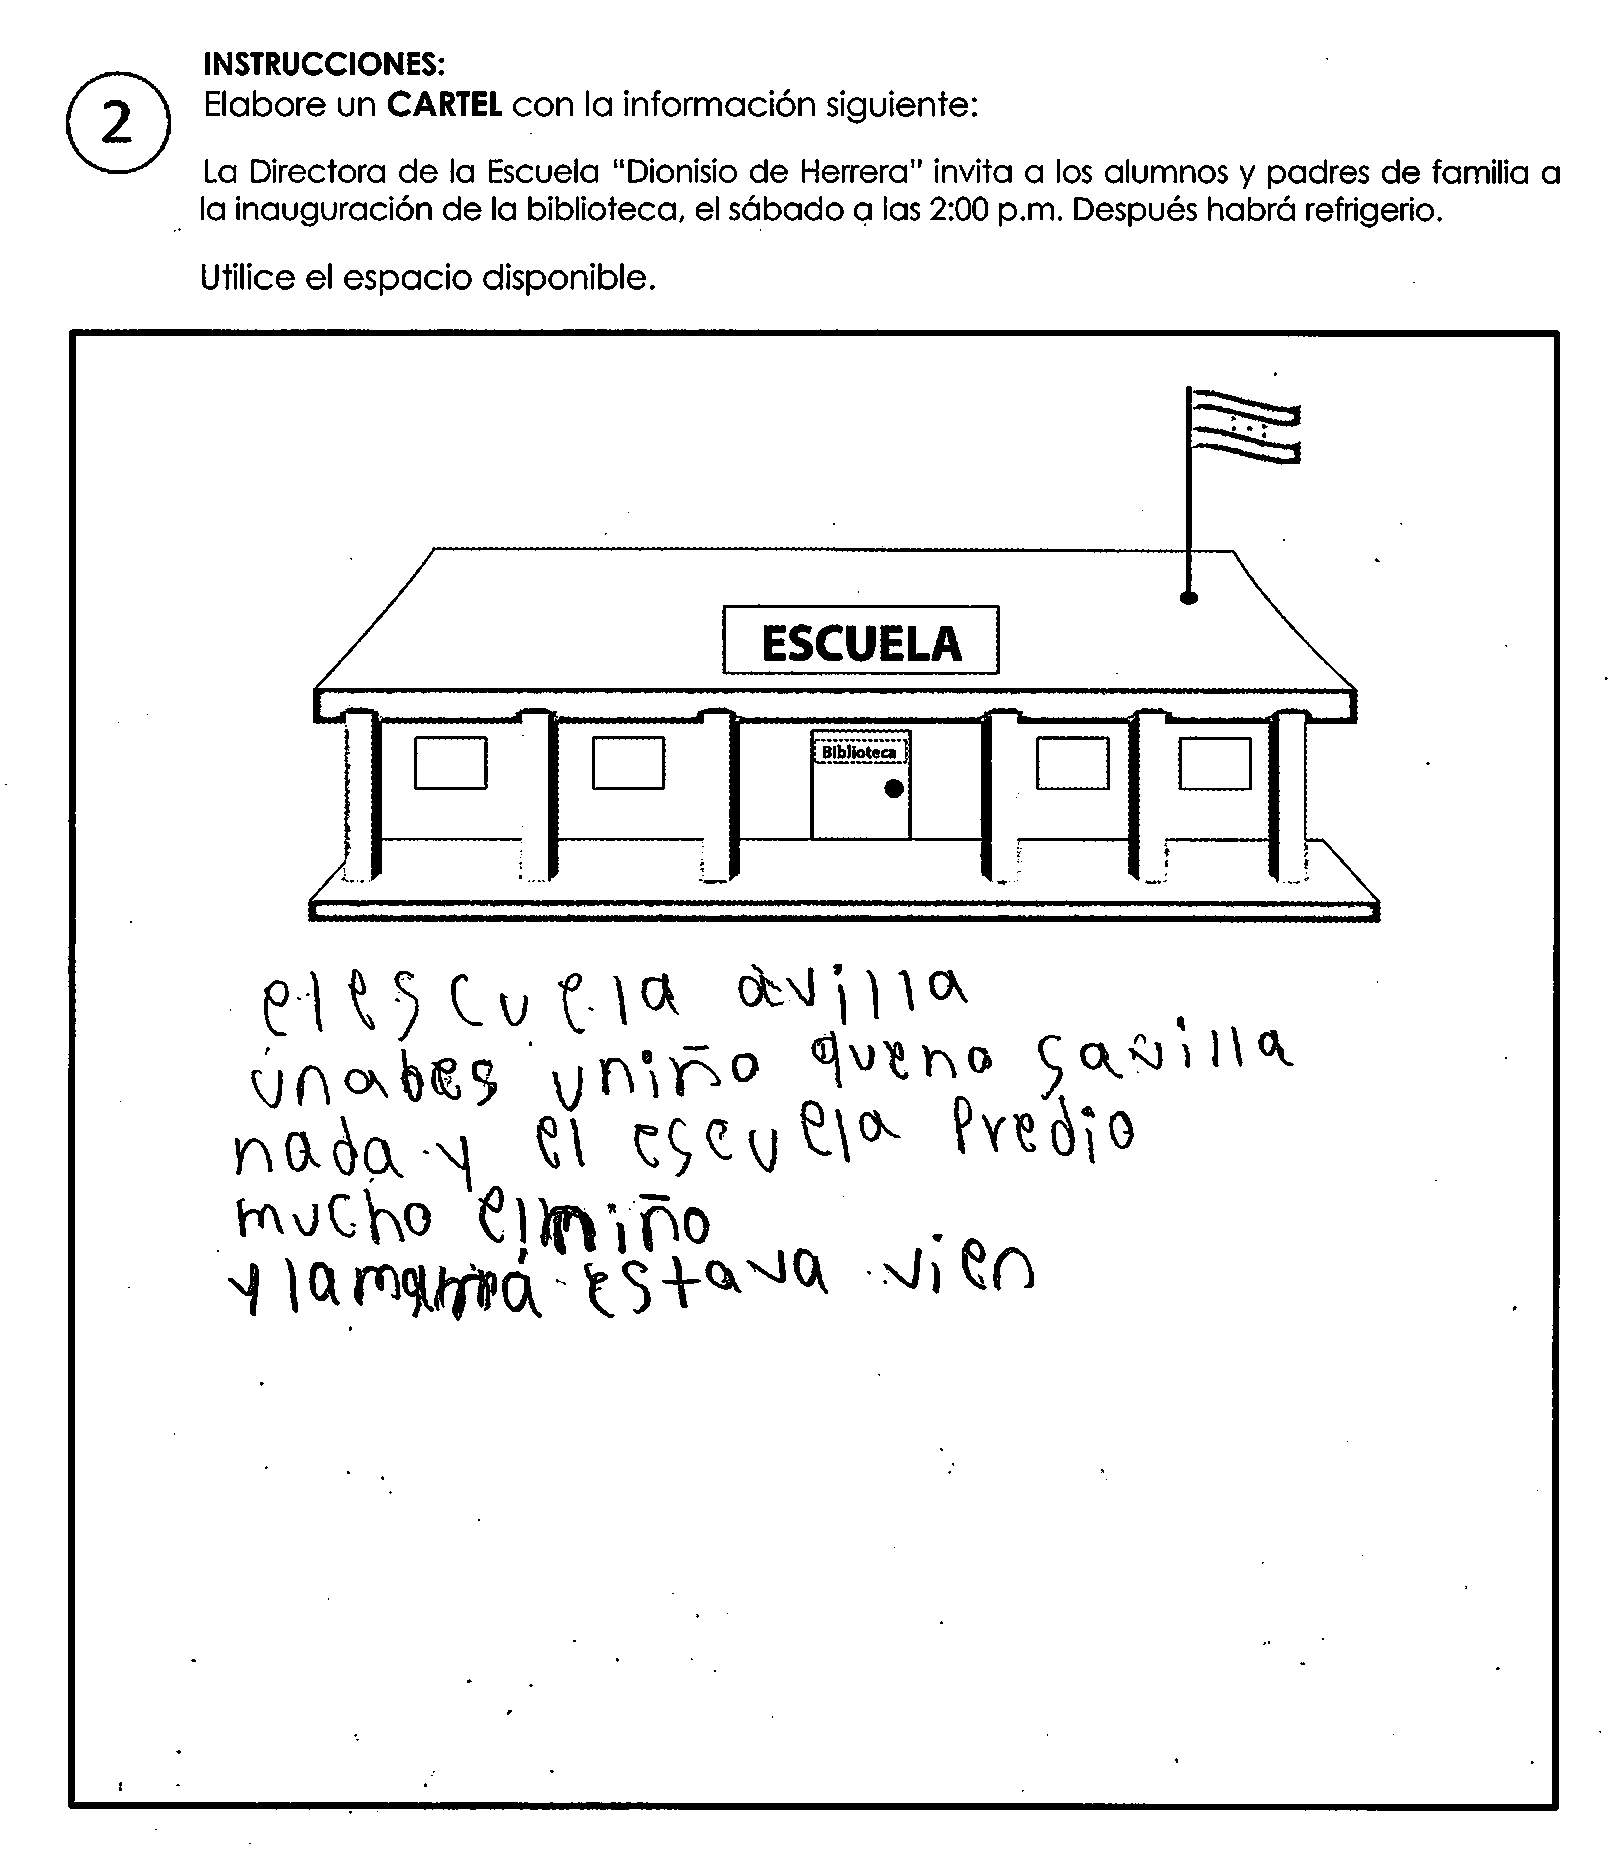 INSTRUCCIONES:
2
Elabore un CARTEL con la información siguiente:
La Directora de la Escuela "Dionisio de Herrera" invita a los alumnos y padres de familia a
la inauguración de la biblioteca, el sábado a las 2:00 p.m. Después habrá refrigerio.
Utilice el espacio disponible.
ESCUELA
Biblioteca
el escuela avilla
unabes uniño queno savilla
nada y el escuela Predio
mucho elniño
y lamamá estava vien